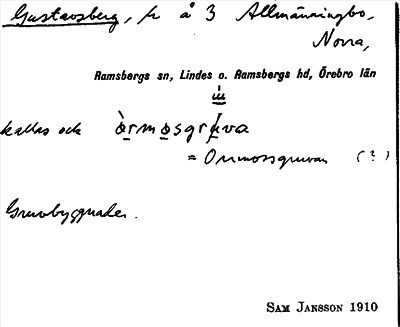 Gustavsberg, h å 3 Allmänningbo,
Norra,
Ramsbergs sn, Lindes o. Ramsbergs hd, Örebro län
kallas och òrmosgruva
= Ormossgruvan (?)
Gruvbyggnader.
SAM JANSSON 1910